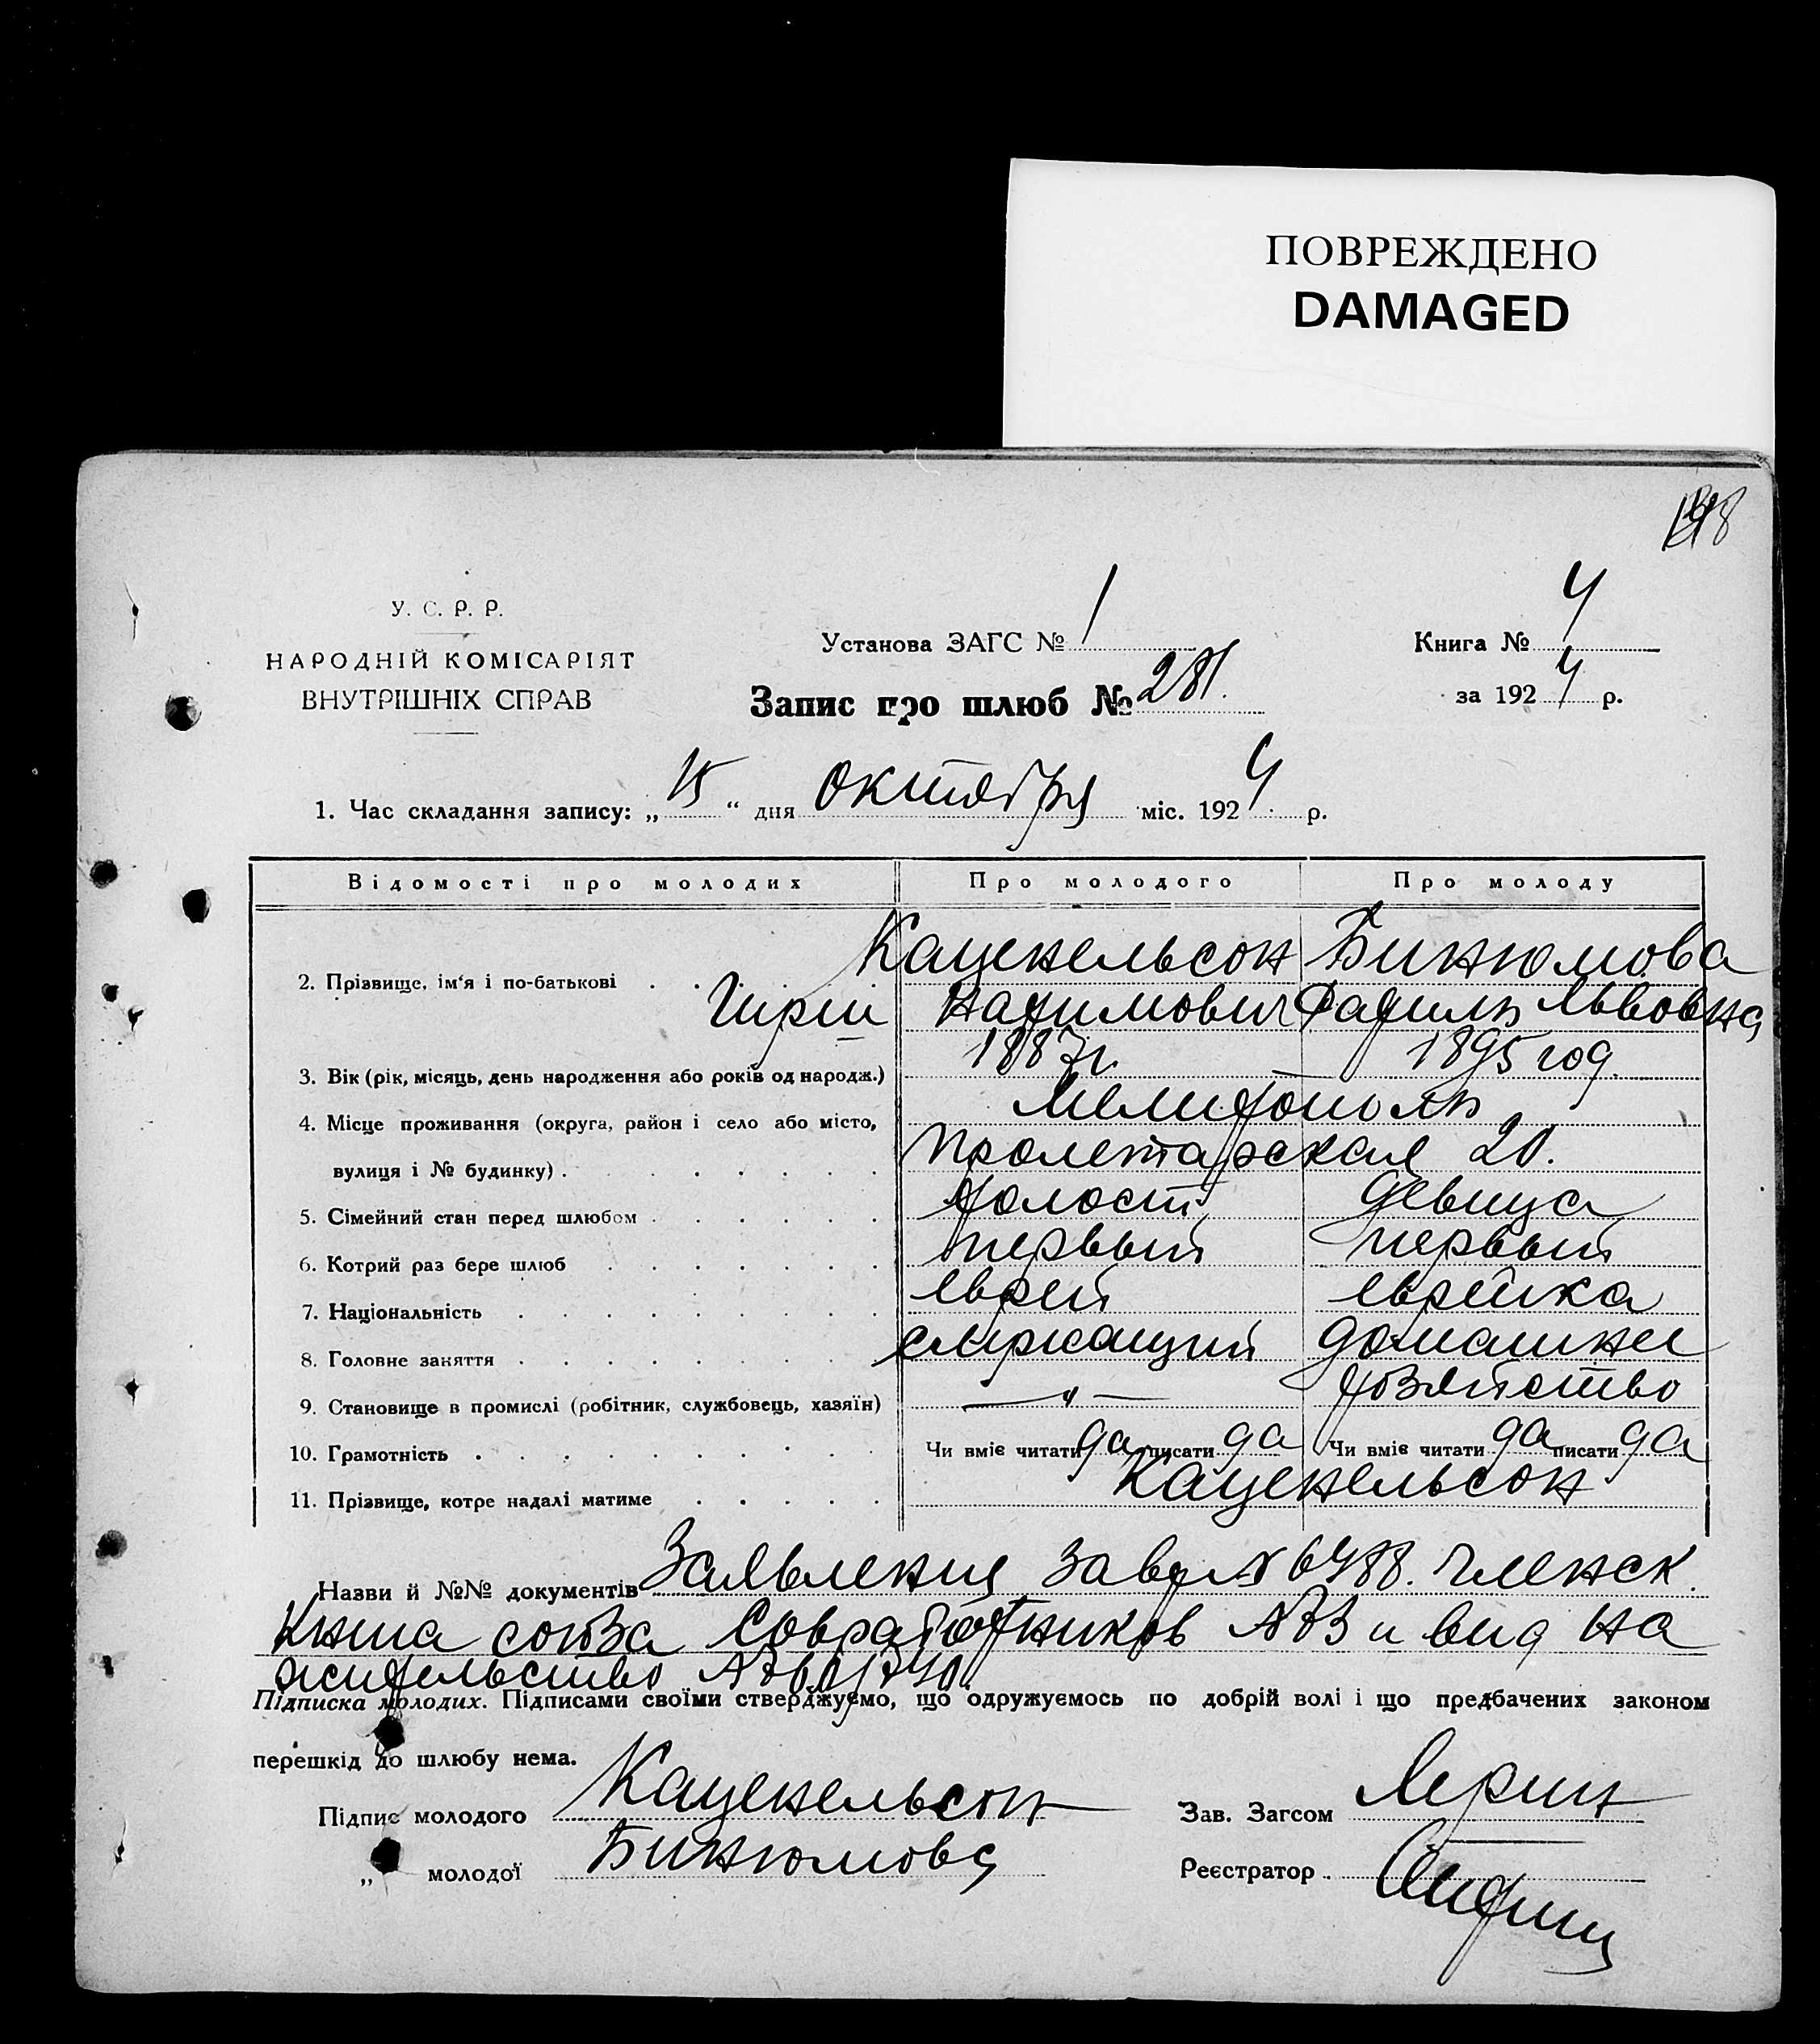 ПОВРЕЖДЕНО
DAMAGED
У. С. Р. Р.
НАРОДНІЙ КОМІСАРІЯТ
ВНУТРІШНІХ СПРАВ
Установа ЗАГС № 1
Книга № 4
Запис про шлюб № 281.
за 1924 р.
1. Час складання запису: „15“ дня октября міс. 1924 р.
Відомості про молодих Про молодого Про молоду
Каценельсон Бинюмова
2. Прізвище, ім'я і по-батькові
Львовна
3. Вік (рік, місяць, день народження або років од народж.) 1887 г. 1895 год
4. Місце проживання (округа, район і село або місто, Мелитополь
вулиця і № будинку) Пролетарская 20.
5. Сімейний стан перед шлюбом холост девица
6. Котрий раз бере шлюб первый первый
7. Національність еврей еврейка
8. Головне заняття служащий домашнее
9. Становище в промислі (робітник, службовець, хазяїн) — „ — хозяйство
10. Грамотність Чи вміє читати да писати да Чи вміє читати да писати да
11. Прізвище, котре надалі матиме Каценельсон
Назви й №№ документів Заявления № 6488. Членск.
книга союза Совработников и вид на
жительство
Підписка молодих. Підписами своїми стверджуємо, що одружуємось по добрій волі і що предбачених законом
перешкід до шлюбу нема.
Підпис молодого Каценельсон Зав. Загсом
„ молодої Бинюмова Реєстратор